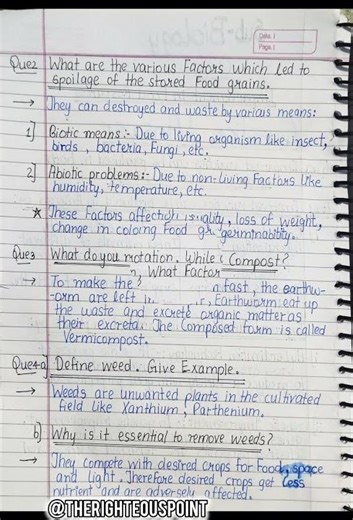 Sub-Biology
Date :
Page :
Que2 What are the various Factors which led to
spoilage of the stored Food grains.
→ They can destroyed and waste by various means:
1] Biotic means:- Due to living organism like insect,
birds, bacteria, Fungi, etc.
2] Abiotic problems:- Due to non-living Factors like
humidity, temperature, etc.
★ These Factors affect quality, loss of weight,
change in coloring Food germinability.
Que3 What do you Compost?
What Factor
→ To make the fast, the earthw-
orm are left Earthworm eat up
the waste and excrete organic matter as
their excreta. The Composed form is called
Vermicompost.
Que4 a) Define weed. Give Example.
→ Weeds are unwanted plants in the cultivated
field like Xanthium, Parthenium.
b) Why is it essential to remove weeds?
→ They compete with desired crops for Food, space
and light. Therefore desired crops get less
nutrient and are adversely affected.
@THERIGHTEOUSPOINT